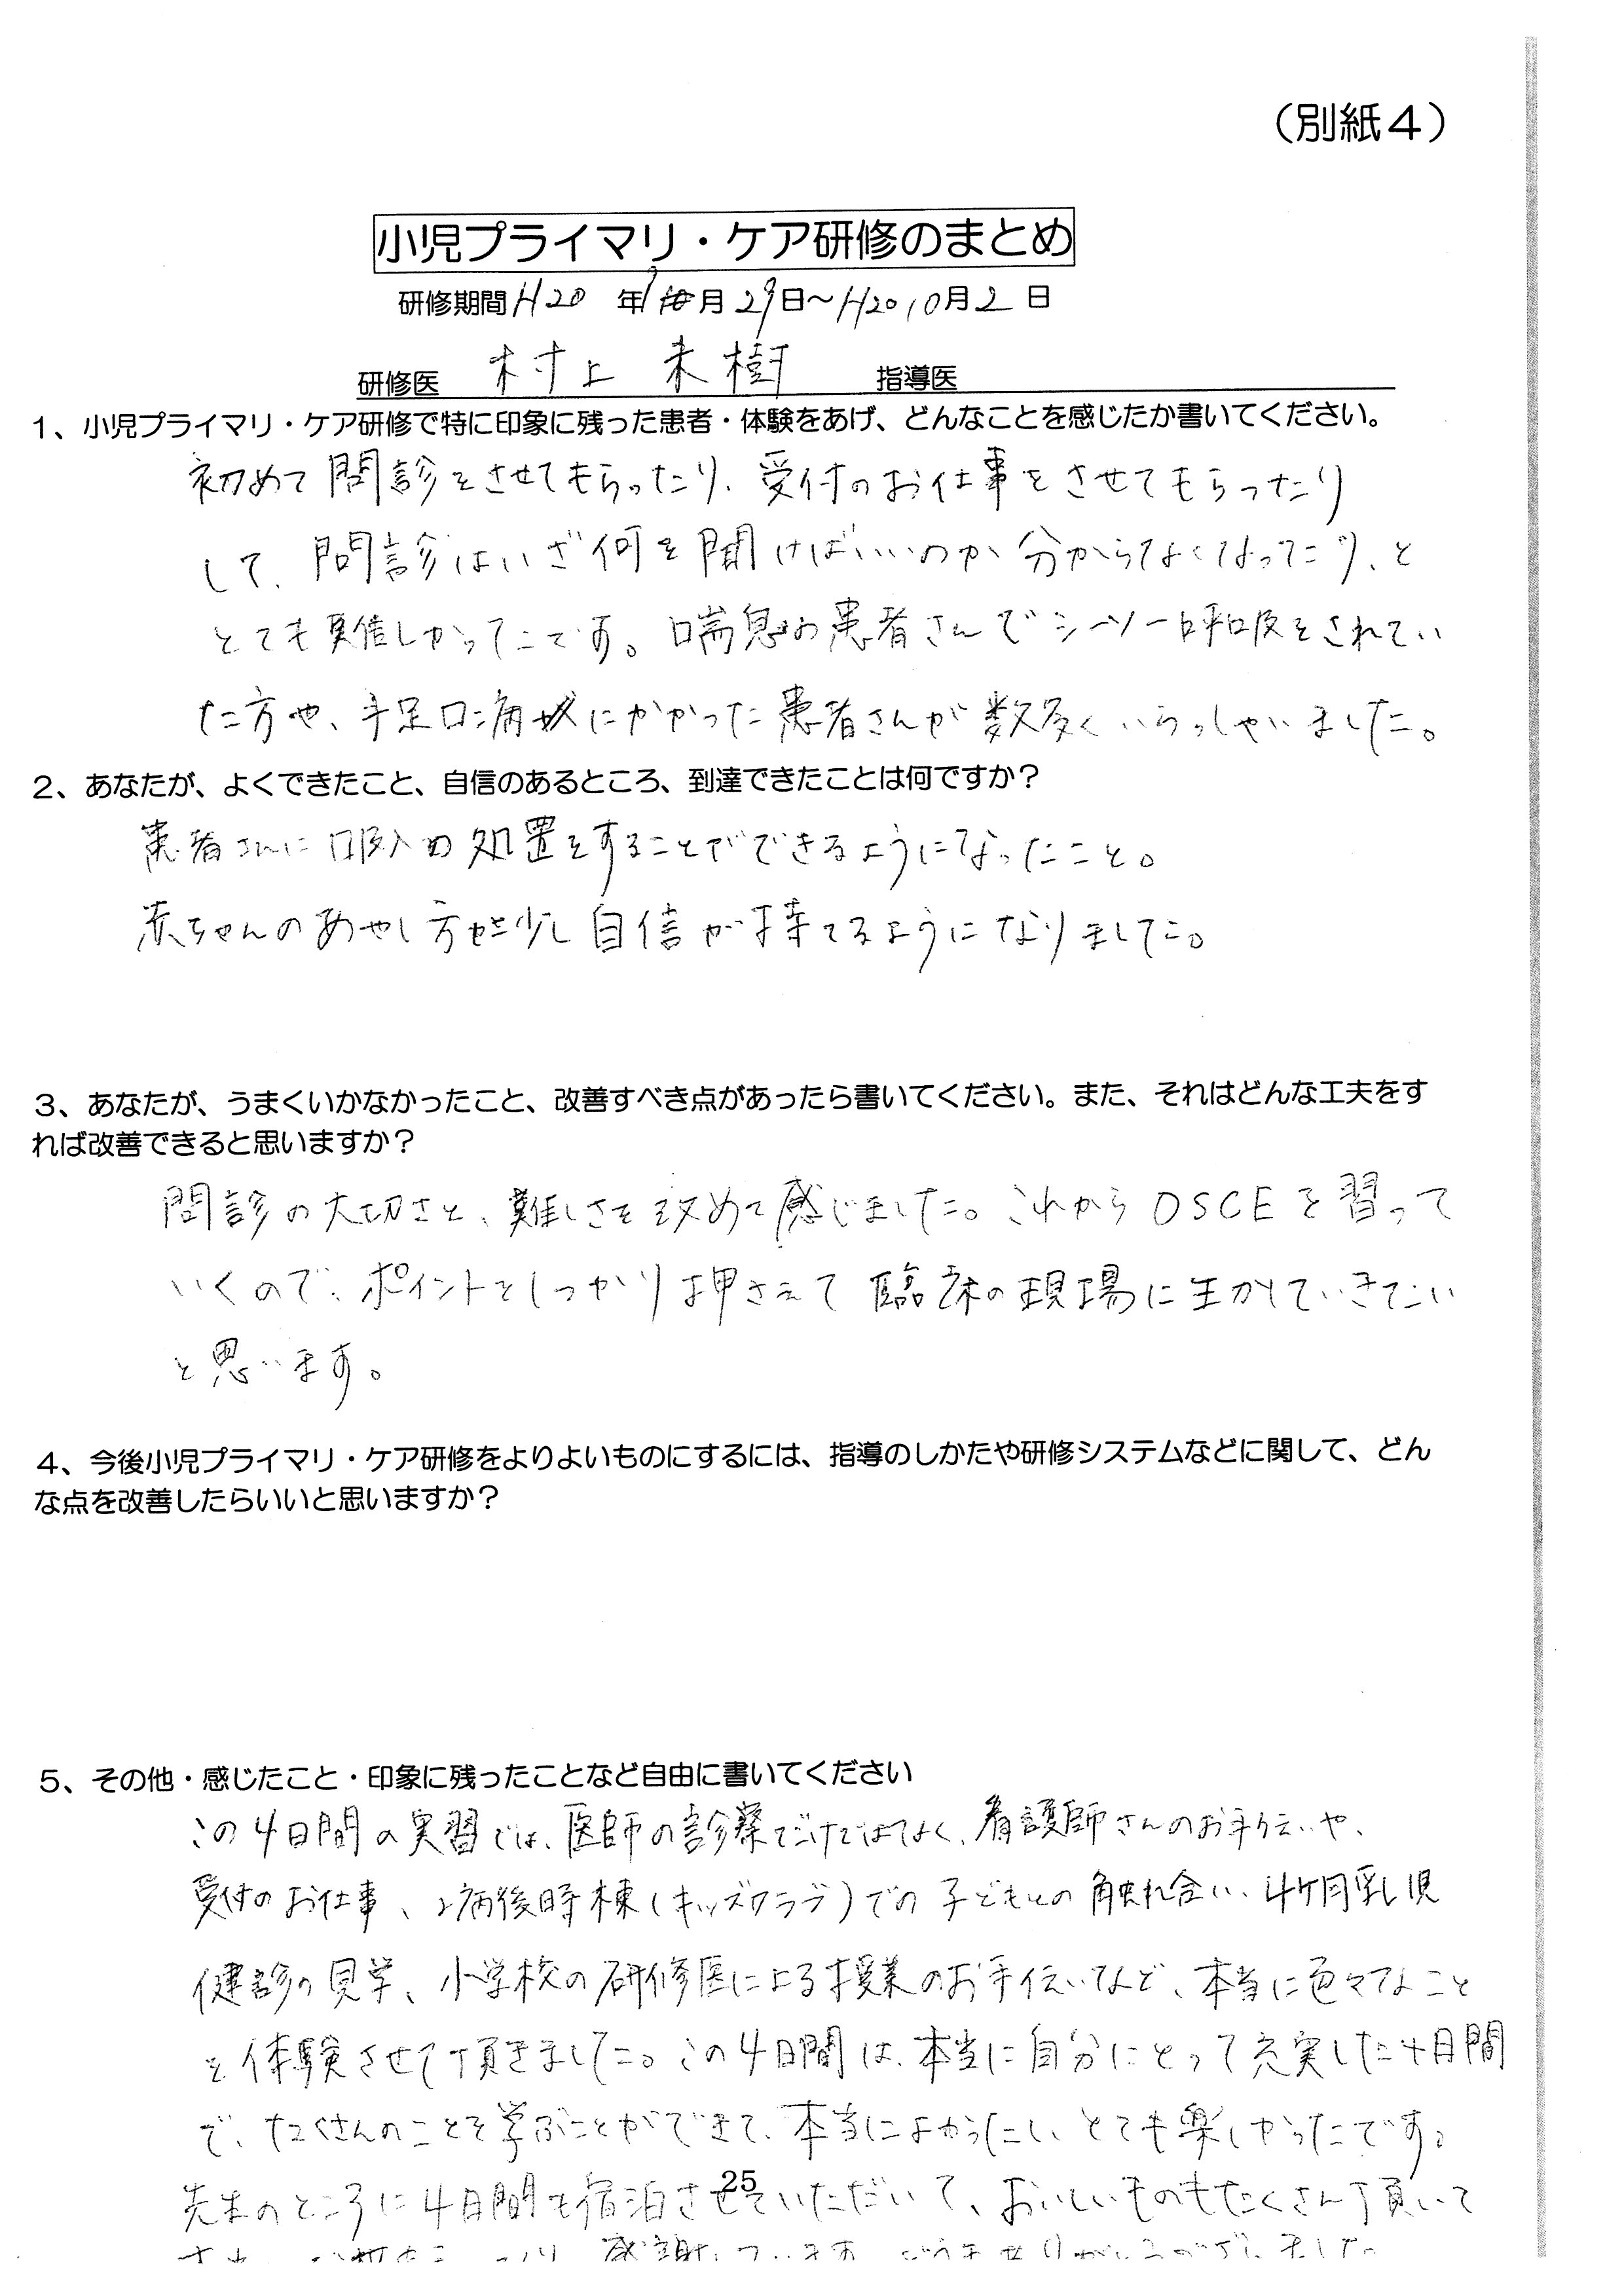 (別紙4)
小児プライマリ・ケア研修のまとめ
研修期間 H20 年 9月 29日～H20 10月 2 日
研修医 村上 未樹 指導医
1、小児プライマリ・ケア研修で特に印象に残った患者・体験をあげ、どんなことを感じたか書いてください。
初めて問診をさせてもらったり、受付のお仕事をさせてもらったり
して、問診はいざ何を聞けばいいのか分からなくなったり、と
とても難しかったです。喘息の患者さんでシーソー呼吸をされてい
た方や、手足口病にかかった患者さんが数多くいらっしゃいました。
2、あなたが、よくできたこと、自信のあるところ、到達できたことは何ですか？
患者さんに吸入の処置をすることができるようになったこと。
赤ちゃんのあやし方も少し自信が持てるようになりました。
3、あなたが、うまくいかなかったこと、改善すべき点があったら書いてください。また、それはどんな工夫をす
れば改善できると思いますか？
問診の大切さと、難しさを改めて感じました。これからOSCEを習って
いくので、ポイントをしっかり押さえて臨床の現場に生かしていきたい
と思います。
4、今後小児プライマリ・ケア研修をよりよいものにするには、指導のしかたや研修システムなどに関して、どん
な点を改善したらいいと思いますか？
5、その他・感じたこと・印象に残ったことなど自由に書いてください
この4日間の実習では、医師の診察だけではなく、看護師さんのお手伝いや、
受付のお仕事、病後時棟(キッズクラブ)での子どもとの触れ合い、4ヶ月乳児
健診の見学、小学校の研修医による授業のお手伝いなど、本当に色々なこと
を体験させて頂きました。この4日間は、本当に自分にとって充実した4日間
で、たくさんのことを学ぶことができて、本当によかったし、とても楽しかったです。
先生のところに4日間も宿泊させていただいて、おいしいものもたくさん頂いて
25
感謝しています。ありがとうございました。